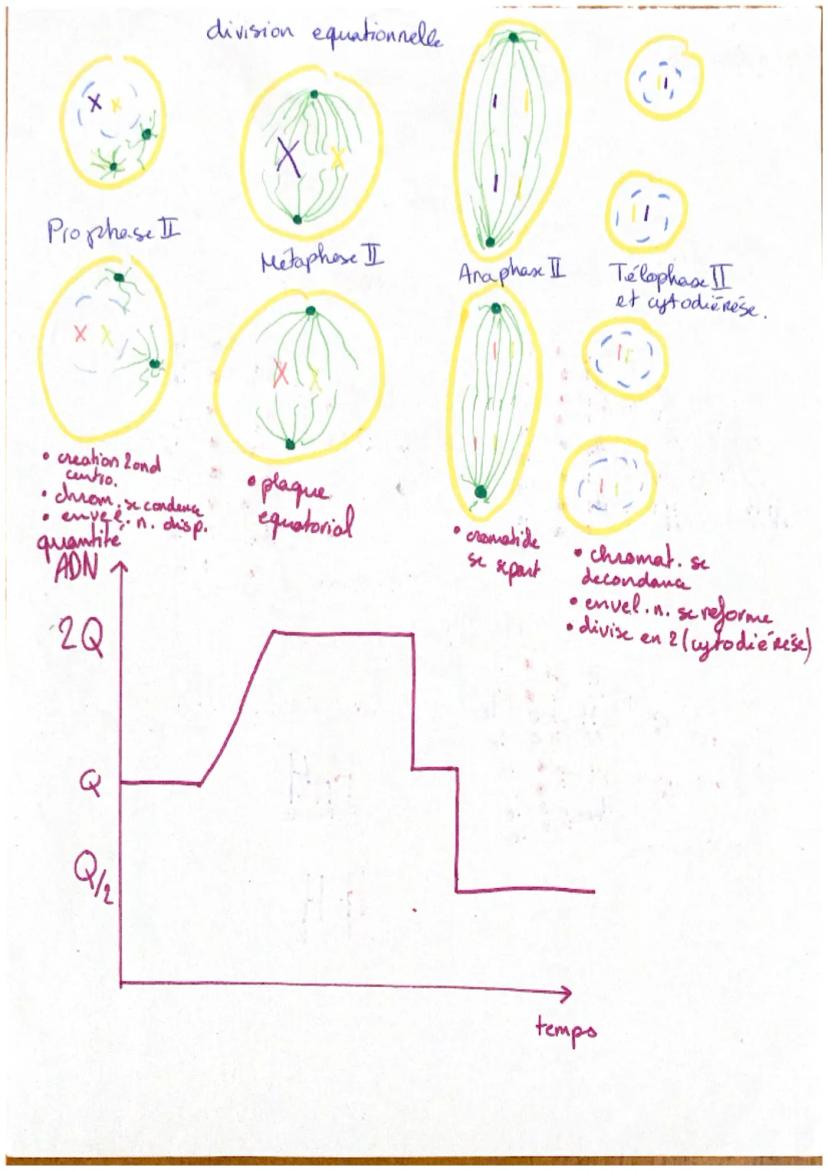 division equationnelle
Prophase II
Métaphase II
Anaphase II
Télophase II
et cytodiérèse.
• creation 2ond
centro.
• chrom. se condense
• envel. n. disp.
• plaque
equatorial
• cromatide
se separt
• chromat. se
decondance
• envel. n. se reforme
• divise en 2 (cytodiérèse)
quantité
ADN
2Q
Q
Q/2
temps